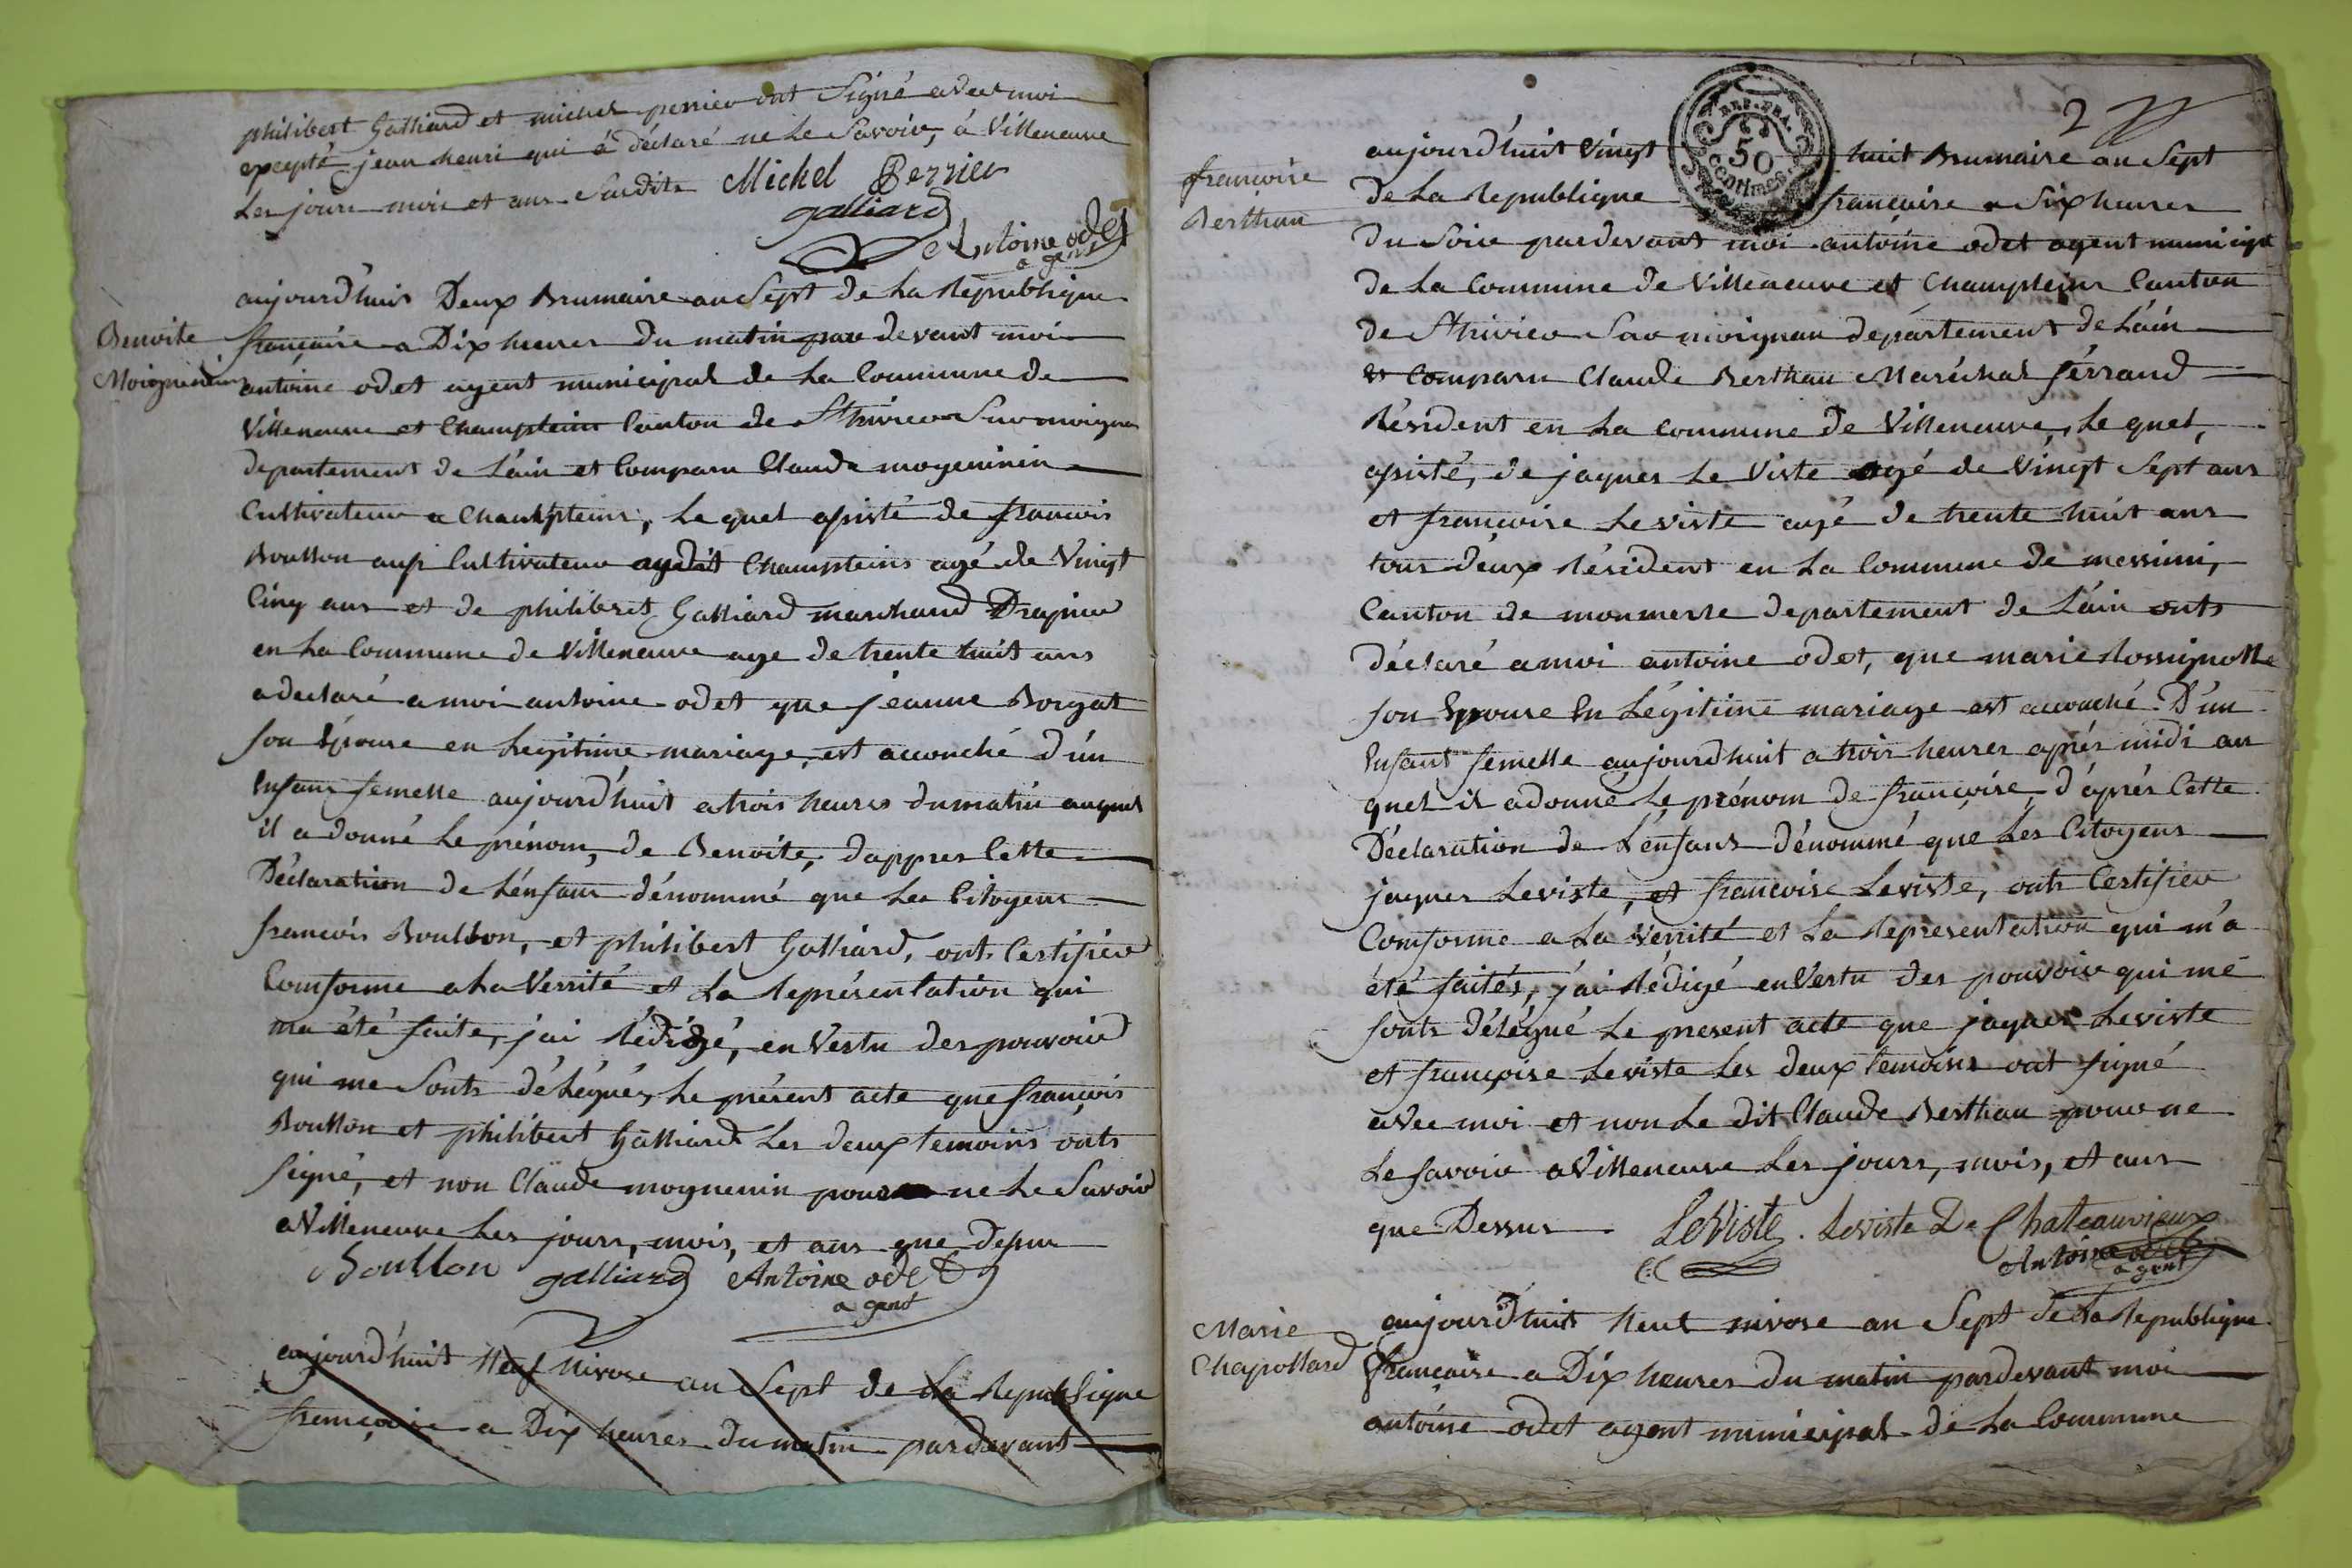 philibert Galliard et michel perrier ont Signé avec moi
excepté jean henri qui á déclaré ne le Savoir, á Villeneuve
les jours mois et ans Susdits Michel Perrier
galliard
Antoine odet
agent
Benoite
Moigneunin
aujourd'huis Deux Brumaire an Sept de la République
francaise a Dix heures du matin par devant moi
antoine odet agent municipal de la Commune de
Villeneuve et Champteins Canton de St trivier Sur moignan
departement de L'áin et Comparu Claude mogeninin
Cultivateur a Champteins, le quel assisté de francois
Boullon aussi Cultivateur aydit Champteins agé de Vingt
Cinq ans et de philibert Galliard marchand Drapier
en la Commune de Villeneuve age de trente huit ans
a declaré a moi antoine odet que jeanne Borgat
son épouse en legitime mariage, est accouché d'un
Enfant femelle aujourd'huit a trois heures du matin auquel
il a donné le prénom, de Benoite, dappres Cette
Déclaration de L'énfant dénommé que les Citoyens
francois Boullon, et philibert Galliard, ont Certifier
Comforme a la Verrité et la Représentation qui
ma été faite, j'ai Rédigé, en Vertu des pouvoird
qui me Sonts délégués, le présent acte que francois
Boullon et philibert Galliard les deux temoins onts
Signé, et non Claude mognenin pour ne le Savoir
a Villeneuve les jours, mois, et ans que dessus
Boullon galliard Antoine odet
agent
aujourd'huit Neuf Nivose an Sept de la Republique
francaise a Dix heures du matin pardevant
2
REP. FRA.
50
Centimes
francoise
Berthau
aujourd'huit Vingt huit Brumaire an Sept
de la Republique francaise a Six heures
du Soir pardevant moi antoine odet agent municipal
de la Commune de Villeneuve et Champteins Canton
de St trivier Sur moignan départément de L'áin
et Comparu Claude Berthau Maréchal férrand
Résident en la Commune de Villeneuve, le quel,
assisté, de jaques le Viste agé de Vingt Sept ans
et francoise le viste agé de trente huit ans
tous deux Résident en la Commune de messimi,
Canton de monmerle departement de L'áin onts
déclaré a moi antoine odet, que marie Rossignolle
son Epouse En Légitime mariage est accouché D'un
Enfant femelle aujourd'huit a trois heures aprés midi au
quel il a donné le prénom de francoise, d'áprés Cette
Déclaration de L'énfant dénommé que les Citoyens
jaques Leviste, et francoise Leviste, onts Certifier
Comforme a la Verrité et la Representation qui m'a
été faités, j'ai Rédigé en Vertu des pouvoir qui me
sonts délégué le present acte que jaques Leviste
et francoise Leviste les deux temoins ont signé
avec moi et non le dit Claude Berthau pour ne
le savoir a Villeneuve les jours, mois, et ans
que Dessus LeViste. Leviste De Chateauvieux
Antoine odet
agent
Marie
Chapollard
aujourd'huit Neuf nivose an Sept de la Republique
francaise a Dix heures du matin pardevant moi
antoine odet agent municipal de la Commune